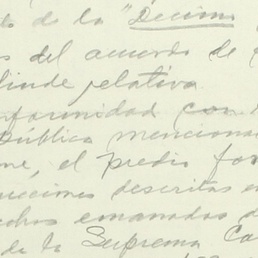 de la "Décima
del acuerdo de
linde relativa
formidad con
Pública menciona
el predio
cciones descritas en
chos emanados d
de la Suprema Co